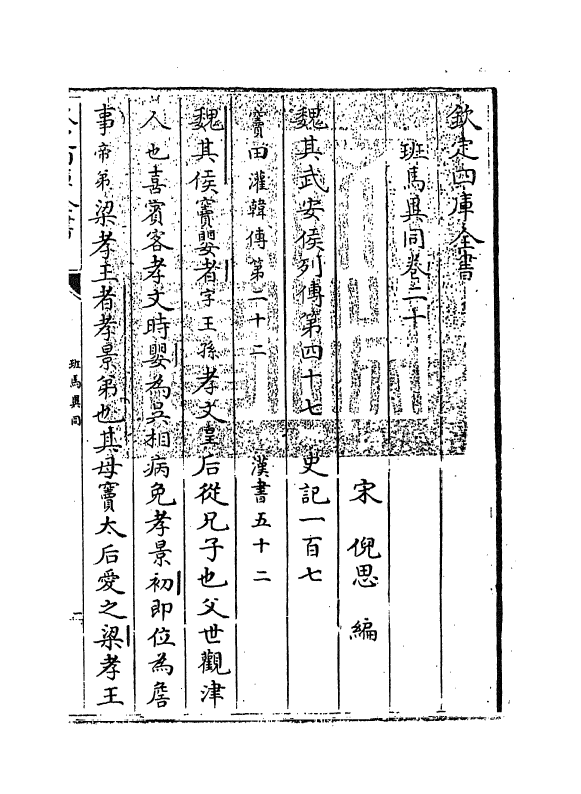 欽定四庫全書
班馬異同卷二十
宋 倪思 編
魏其武安侯列傳第四十七 史記一百七
竇田灌韓傳第二十二 漢書五十二
魏其侯竇嬰者字王孫孝文皇后從兄子也父世觀津
人也喜賓客孝文時嬰為吳相病免孝景初即位為詹
事帝弟梁孝王者孝景弟也其母竇太后愛之梁孝王
班馬異同
一